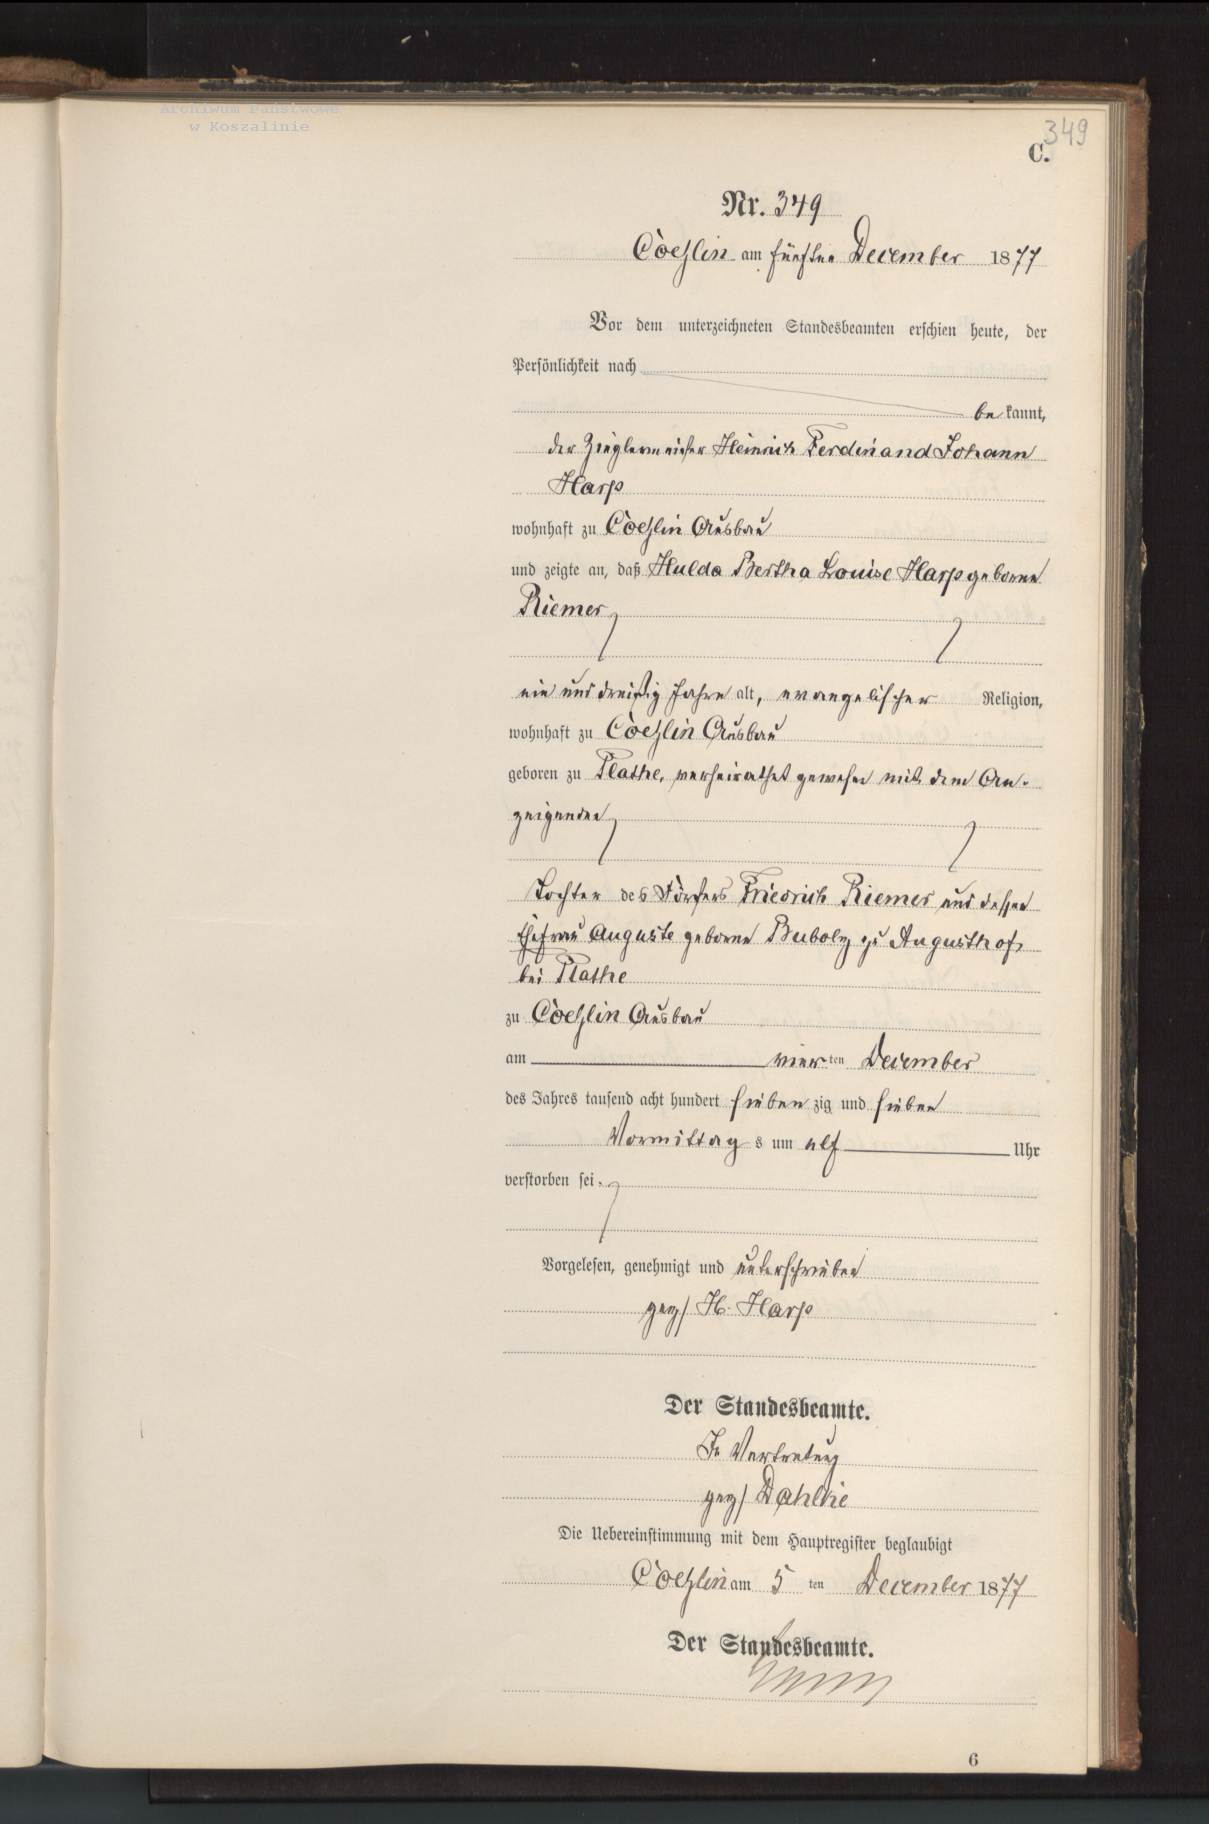 Archiwum Państwowe
w Koszalinie
349
C.
Nr. 349
Coeslin am fünften December 1877
Vor dem unterzeichneten Standesbeamten erschien heute, der
Persönlichkeit nach
be kannt,
der Zieglermeister Heinrich Ferdinand Johann
Harp
wohnhaft zu Coeslin Ausbau
und zeigte an, daß Hulda Bertha Louise Harp geborne
Riemer
ein und dreißig Jahre alt, evangelischer Religion,
wohnhaft zu Coeslin Ausbau
geboren zu Plathe, verheirathet gewesen mit dem An-
zeigenden
Tochter des Försters Friedrich Riemer und dessen
Ehefrau Auguste geborne Bubolz zu Augusthof
bei Plathe
zu Coeslin Ausbau
am vier ten December
des Jahres tausend acht hundert sieben zig und sieben
Vormittag s um elf Uhr
verstorben sei.
Vorgelesen, genehmigt und unterschrieben
gez/ H. Harp
Der Standesbeamte.
In Vertretung
gez/ Dahlke
Die Uebereinstimmung mit dem Hauptregister beglaubigt
Coeslin am 5 ten December 1877
Der Standesbeamte.
6